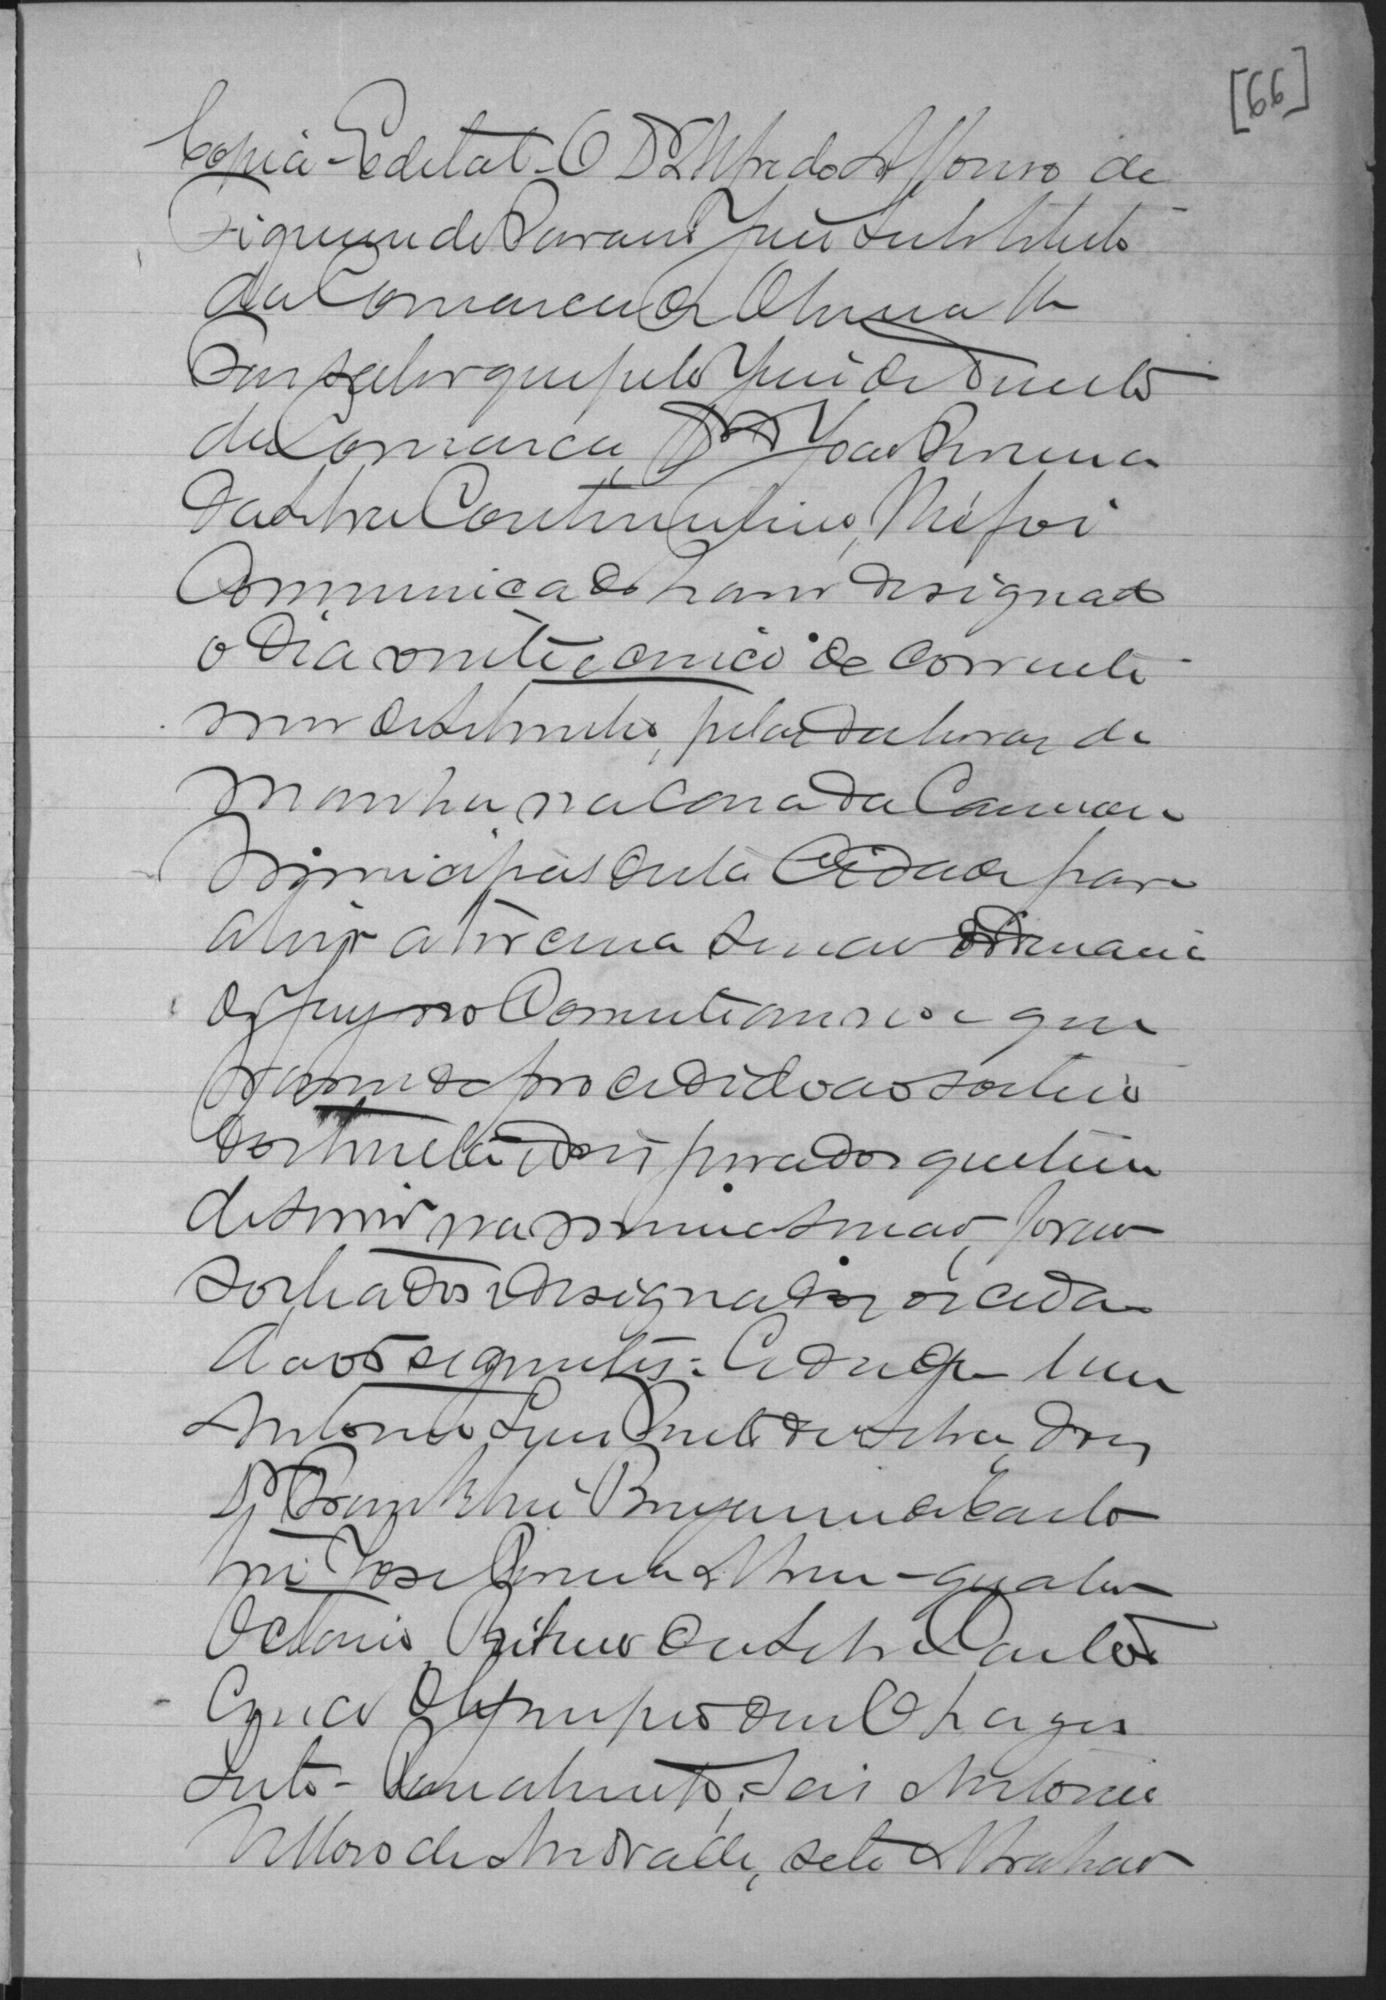 [66]
Copia - Edital - O Dr. Alfredo Affonso de
Figueiredo Juiz Substituto
da Comarca de Olinda
Faz saber que pelo Juiz de Direito
da Comarca, Dr. João Pereira
da Silva Constantino, Me foi
Communicado haver designado
o dia vinte e cinco de corrente
mez de Setembro, pelas dez horas da
manhã na Casa da Camara
Municipal desta Cidade para
abrir a terceira sessão ordinaria
do Jury que
havendo se procedido ao sorteio
dos trinta e dois jurados que tem
de servir na mesma sessão, forão
sorteados e designados os cida
dãos seguintes: Cidade Um
Antonio Luiz da Silva, dois
Dr. Franklin
tres José Pereira - quatro
Octavio da Silva
Cinco Olympio das Chagas
seis Antonio
de Andrade, sete Abrahão